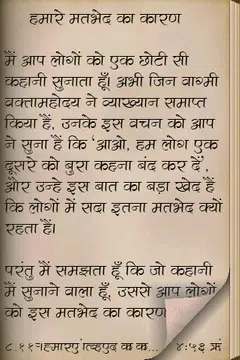 हमारे मतभेद का कारण
मैं आप लोगों को एक छोटी सी
कहानी सुनाता हूँ। अभी जिन वाग्मी
वक्तामहोदय ने व्याख्यान समाप्त
किया हैं, उनके इस वचन को आप
ने सुना हैं कि 'आओ, हम लोग एक
दूसरे को बुरा कहना बंद कर दें',
और उन्हे इस बात का बड़ा खेद हैं
कि लोगों में सदा इतना मतभेद क्यों
रहता हैं।
परंतु मैं समझता हूँ कि जो कहानी
मैं सुनाने वाला हूँ, उससे आप लोगों
को इस मतभेद का कारण